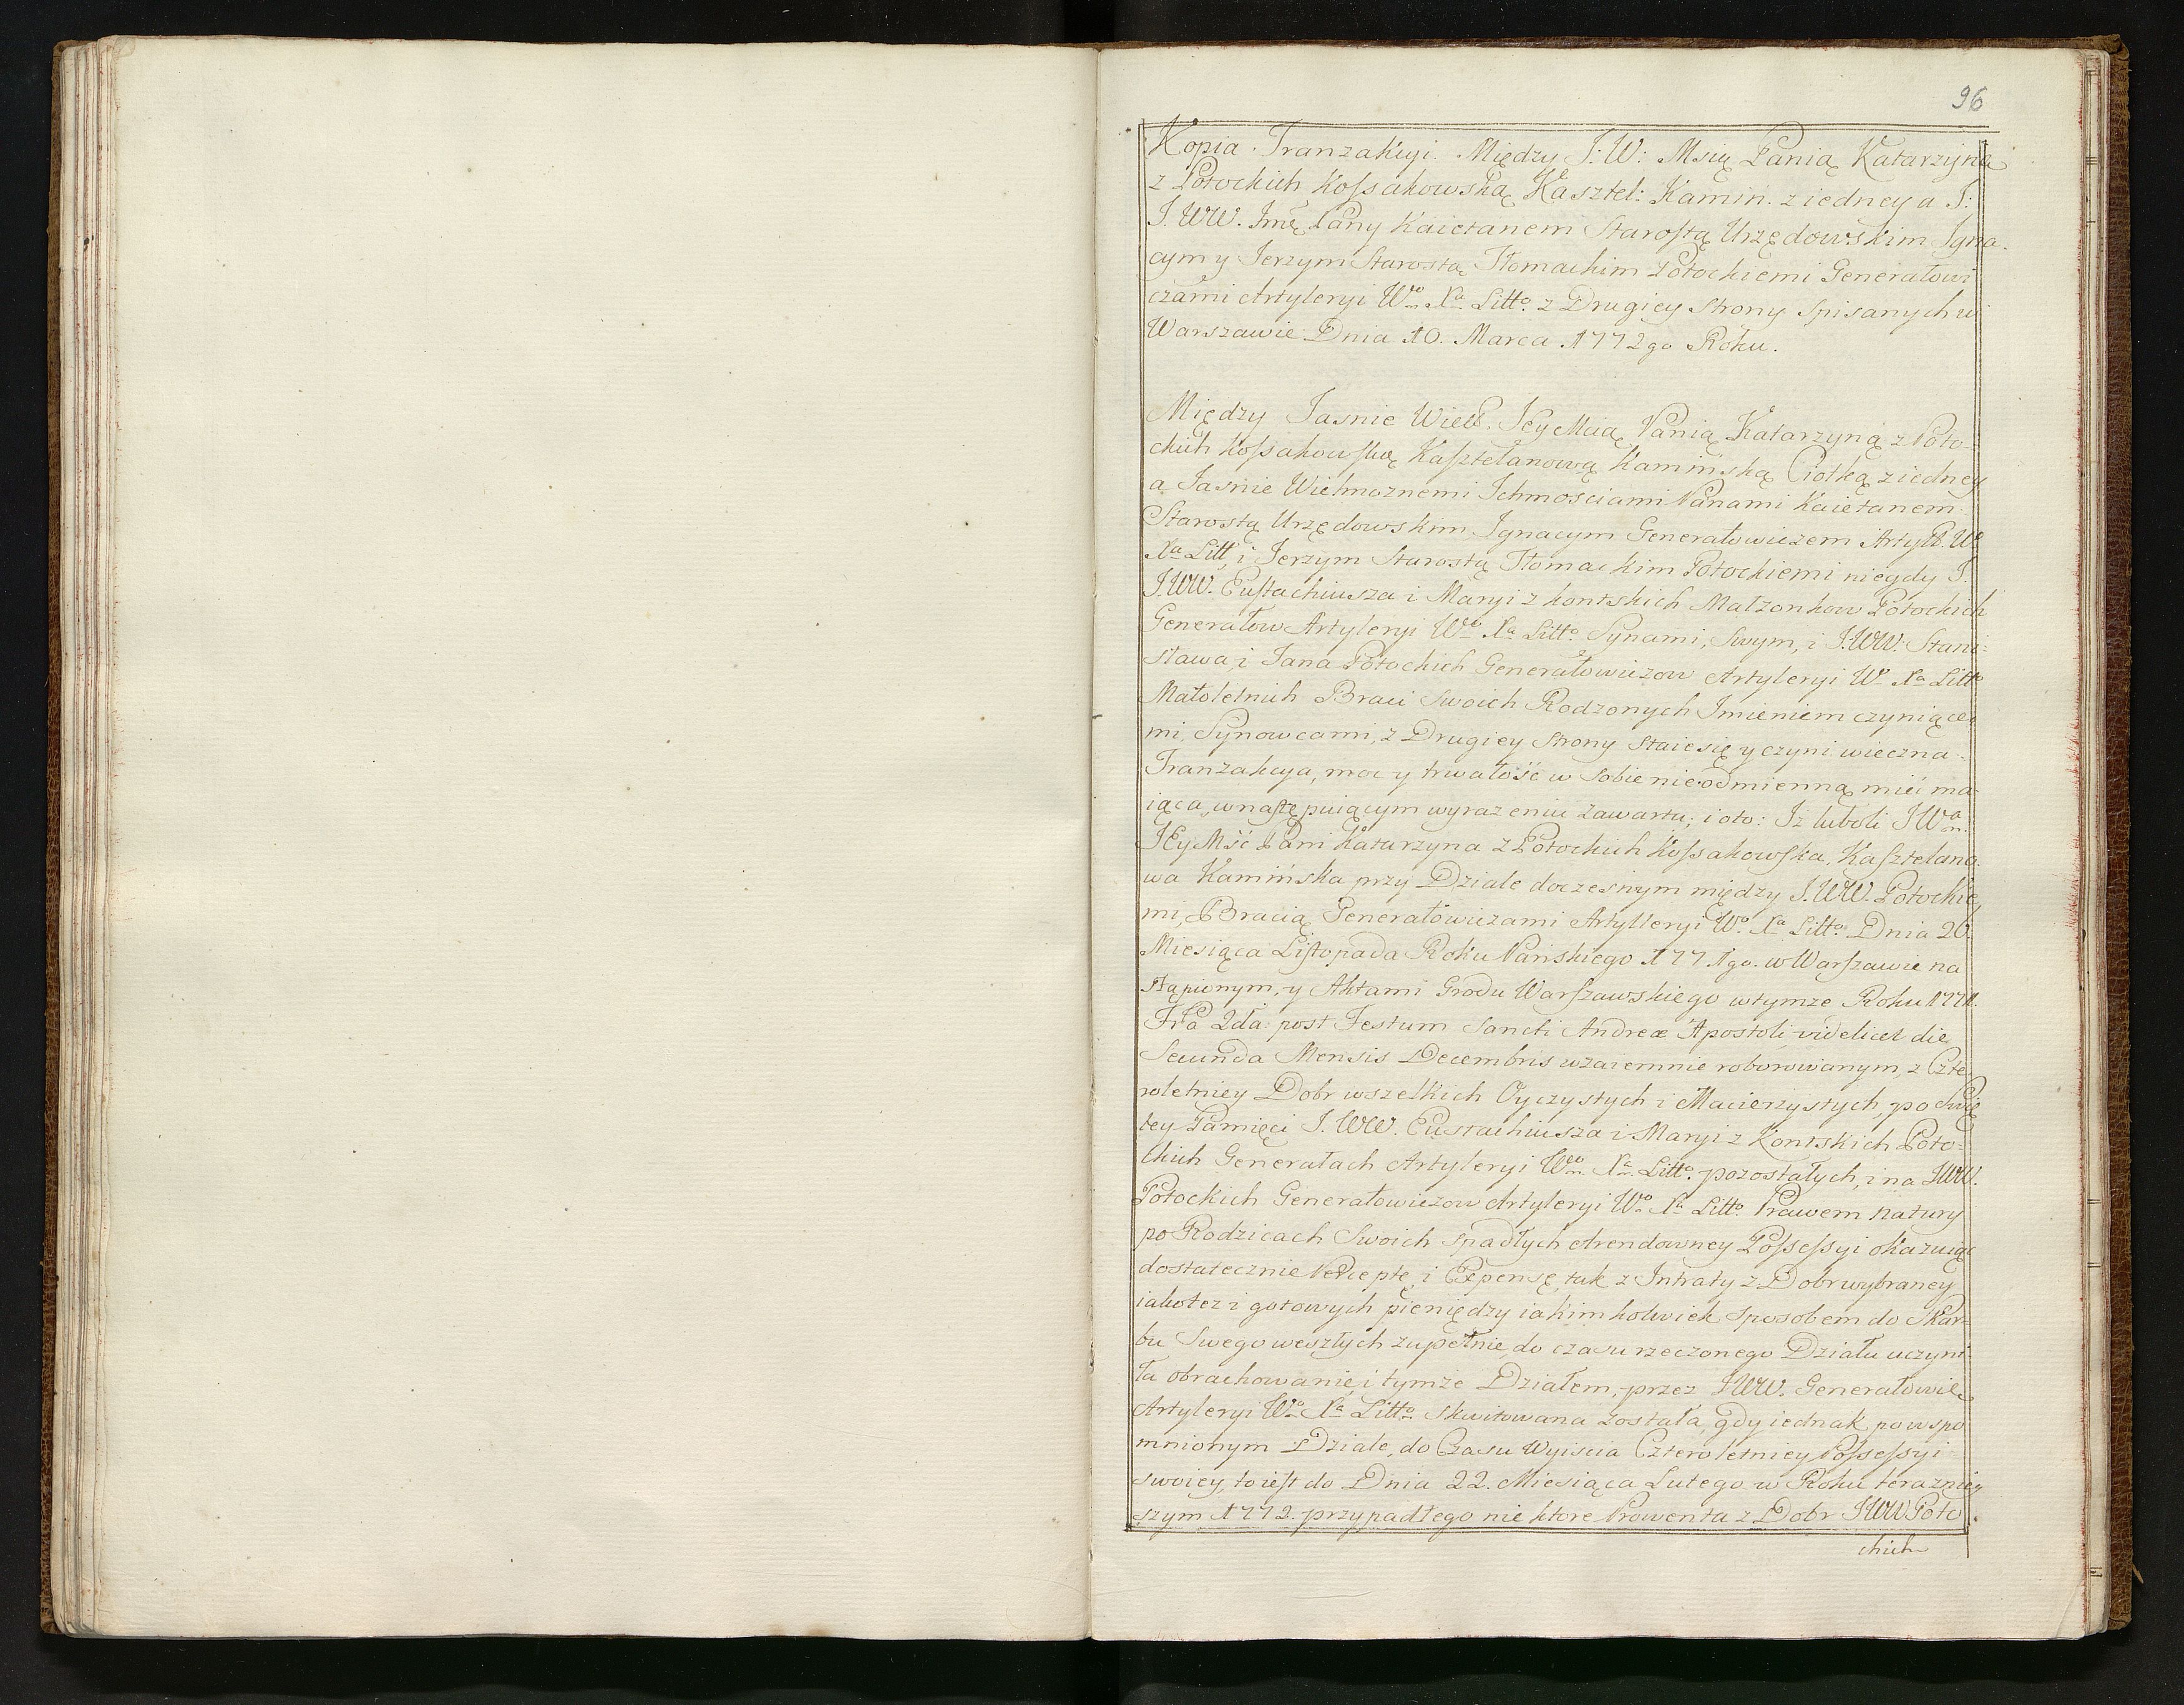 96
Kopia Tranzakcyi. Między J: W: Msią Panią Katarzyną
z Potockich Kossakowską Kasztel: Kamin. z iedney a J:
J. WW. Imę Pany Kaietanem Starostą Urzędowskim Igna-
cym y Jerzym Starostą Tłomackim Potockiemi Generałowi
czami Artyleryi Wo Xa Litto. z Drugiey Strony Spisanych w
Warszawie Dnia 10. Marca 1772go Roku.
Między Jasnie Wiel. Jey Mcią Panią Katarzyną z Poto-
ckich Kossakowską Kasztelanową Kamińską Ciotką z iedney
a Jasnie Wielmoznemi Ichmosciami Panami Kaietanem
Starostą Urzędowskim Ignacym Generałowiczem Artyll. Wo
Xa Litt. i Jerzym Starostą Tłomackim Potockiemi niegdy J.
J. WW. Eustachiusza i Maryi z Kontskich Małzonkow Potockich
Generałow Artyleryi Wo Xa Litto Synami, Swym, i J. WW. Stani-
sława, i Jana Potockich Generałowiczow Artyleryi Wo Xa Litto
Małoletnich Braci Swoich Rodzonych Imieniem czyniące-
mi, Synowcami, z Drugiey Strony Staie się y czyni wieczna
Tranzakcya, moc y trwałość w Sobie nieodmienną mieć ma-
iąca, w następuiącym wyrazeniu zawarta; i oto: Iz luboli JWa
JEyMść Pani Katarzyna z Potockich Kossakowska, Kasztelano-
wa Kamińska przy Dziale doczesnym między J. WW. Potockie-
mi, Bracią Generałowiczami Artylleryi Wo. Xa Litto. Dnia 20.
Miesiąca Listopada Roku Pańskiego 1771go. w Warszawie na
stąpionym, y Aktami Grodu Warszawskiego w tymze Roku 1771.
Fria 2da post Festum Sancti Andreæ Apostoli videlicet die
Secunda Mensis Decembris wzaiemnie roborowanym, z Czte-
roletniey Dobr wszelkich Oyczystych i Macierzystych, po Swię
tey Pamięci J. WW. Eustachiusza i Maryi z Kontskich Poto-
ckich Generałach Artyleryi Wo. Xa. Litto. pozostałych, i na JWW.
Potockich Generałowiczow Artyleryi Wo Xa Litto. Prawem natury
po Rodzicach Swoich Spadłych Arendowney Possessyi okazuiąc
dostatecznie Perceptę, i Expensę, tak z Intraty z Dobr wybraney
iako tez i gotowych pieniędzy iakimkolwiek Sposobem do Skar-
bu Swego weszłych zupełnie, do czasu rzeczonego Działu uczyni-
ła obrachowanie, i tymze Działem, przez J.WW. Generałowic
Artyleryi Wo Xa Litto skwitowana została, gdy iednak po wspo
mnionym Dziale, do Czasu Wyiscia Czteroletniey Possessyi
swoiey, to iest do Dnia 22. Miesiąca Lutego w Roku terazniey
szym 1772. przypadłego nie ktore Prowenta z Dobr JWW Poto
ckich